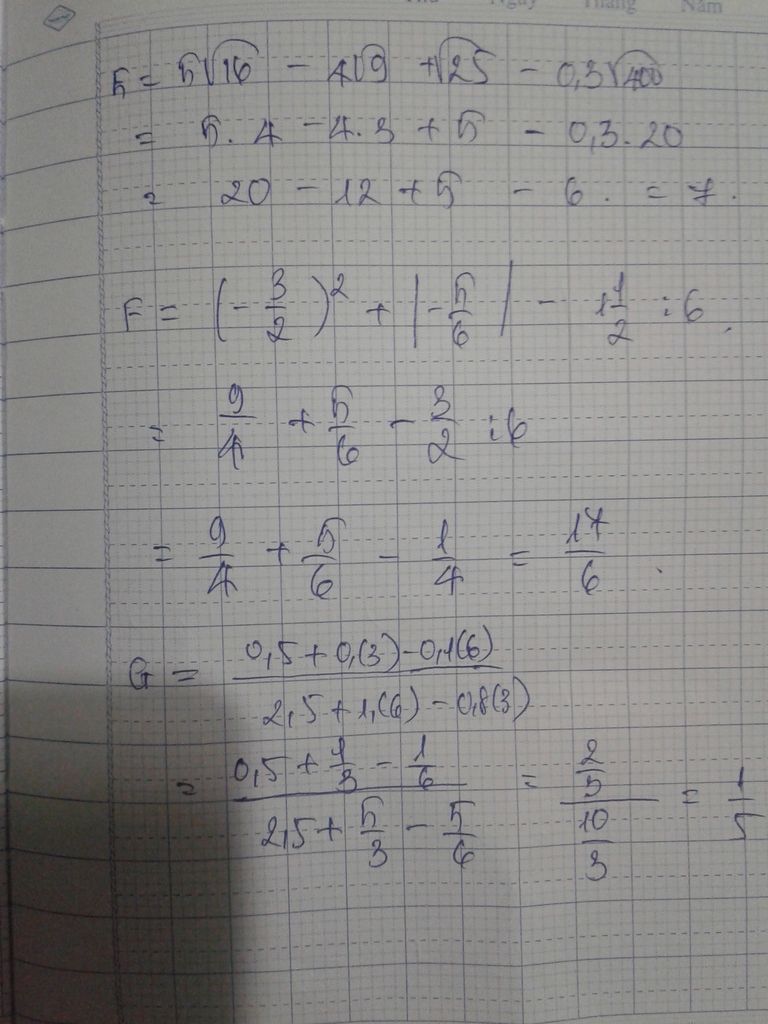 Thứ Ngày Tháng Năm
E = 5√16 - 4√9 + √25 - 0,3√400
= 5.4 - 4.3 + 5 - 0,3.20
= 20 - 12 + 5 - 6. = 7.
F = (-3/2)² + |-5/6| - 1 1/2 : 6.
= 9/4 + 5/6 - 3/2 : 6
= 9/4 + 5/6 - 1/4 = 17/6.
G = (0,5 + 0,(3) - 0,1(6))/(2,5 + 1,(6) - 0,8(3))
= (0,5 + 1/3 - 1/6)/(2,5 + 5/3 - 5/6) = (2/3)/(10/3) = 1/5